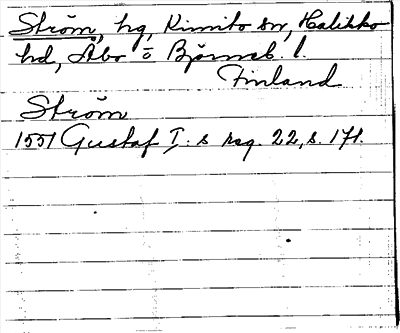 Ström, hg, Kimito sn, Halikko
hd, Åbo o Björneb. l.
Finland
Ström
1551 Gustaf I.s reg. 22, s. 171.